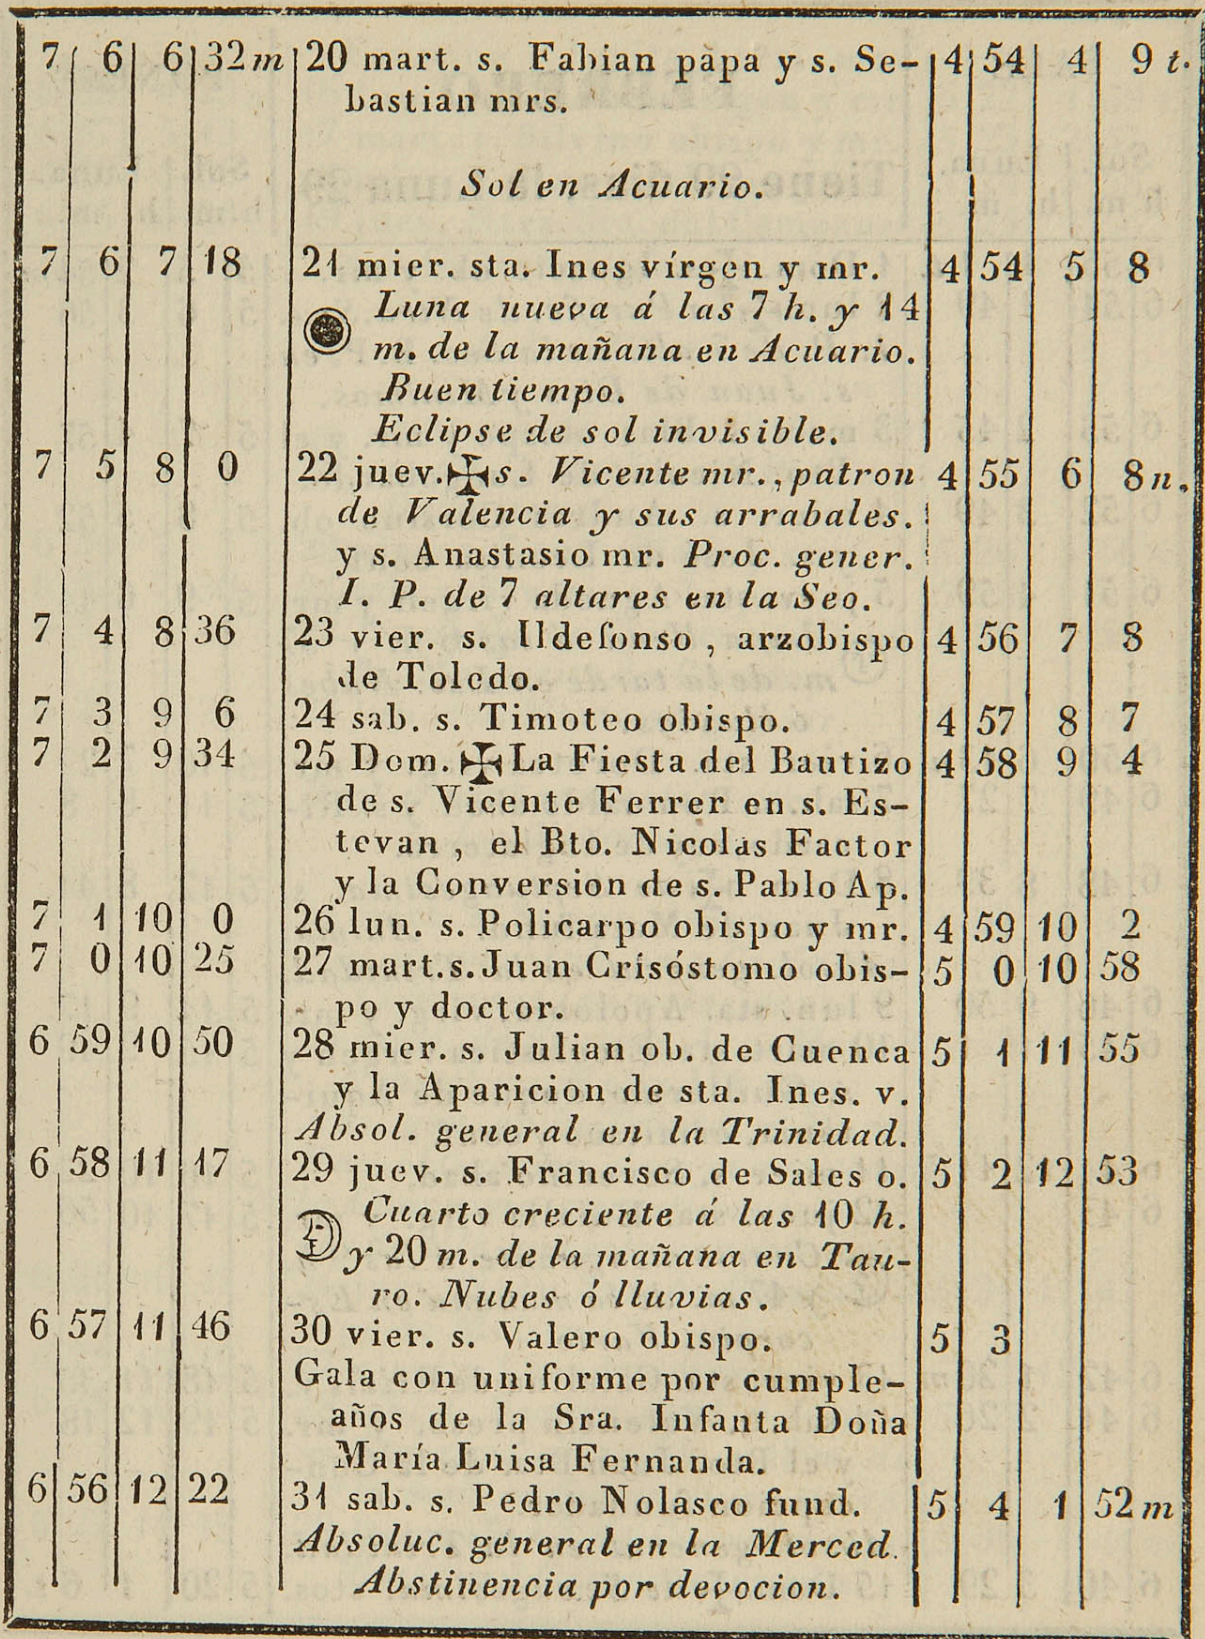 7 6 6 32 m 20 mart. s. Fabian papa y s. Se- 4 54 4 9 t.
bastian mrs.
Sol en Acuario.
7 6 7 18 21 mier. sta. Ines vírgen y mr. 4 54 5 8
Luna nueva á las 7 h. y 14
m. de la mañana en Acuario.
Buen tiempo.
Eclipse de sol invisible.
7 5 8 0 22 juev. ✠ s. Vicente mr., patron 4 55 6 8 n.
de Valencia y sus arrabales.
y s. Anastasio mr. Proc. gener.
I. P. de 7 altares en la Seo.
7 4 8 36 23 vier. s. Ildefonso, arzobispo 4 56 7 8
de Toledo.
7 3 9 6 24 sab. s. Timoteo obispo. 4 57 8 7
7 2 9 34 25 Dom. ✠ La Fiesta del Bautizo 4 58 9 4
de s. Vicente Ferrer en s. Es-
tevan, el Bto. Nicolas Factor
y la Conversion de s. Pablo Ap.
7 1 10 0 26 lun. s. Policarpo obispo y mr. 4 59 10 2
7 0 10 25 27 mart. s. Juan Crisóstomo obis- 5 0 10 58
po y doctor.
6 59 10 50 28 mier. s. Julian ob. de Cuenca 5 1 11 55
y la Aparicion de sta. Ines. v.
Absol. general en la Trinidad.
6 58 11 17 29 juev. s. Francisco de Sales o. 5 2 12 53
Cuarto creciente á las 10 h.
y 20 m. de la mañana en Tau-
ro. Nubes ó lluvias.
6 57 11 46 30 vier. s. Valero obispo. 5 3
Gala con uniforme por cumple-
años de la Sra. Infanta Doña
María Luisa Fernanda.
6 56 12 22 31 sab. s. Pedro Nolasco fund. 5 4 1 52 m
Absoluc. general en la Merced.
Abstinencia por devocion.